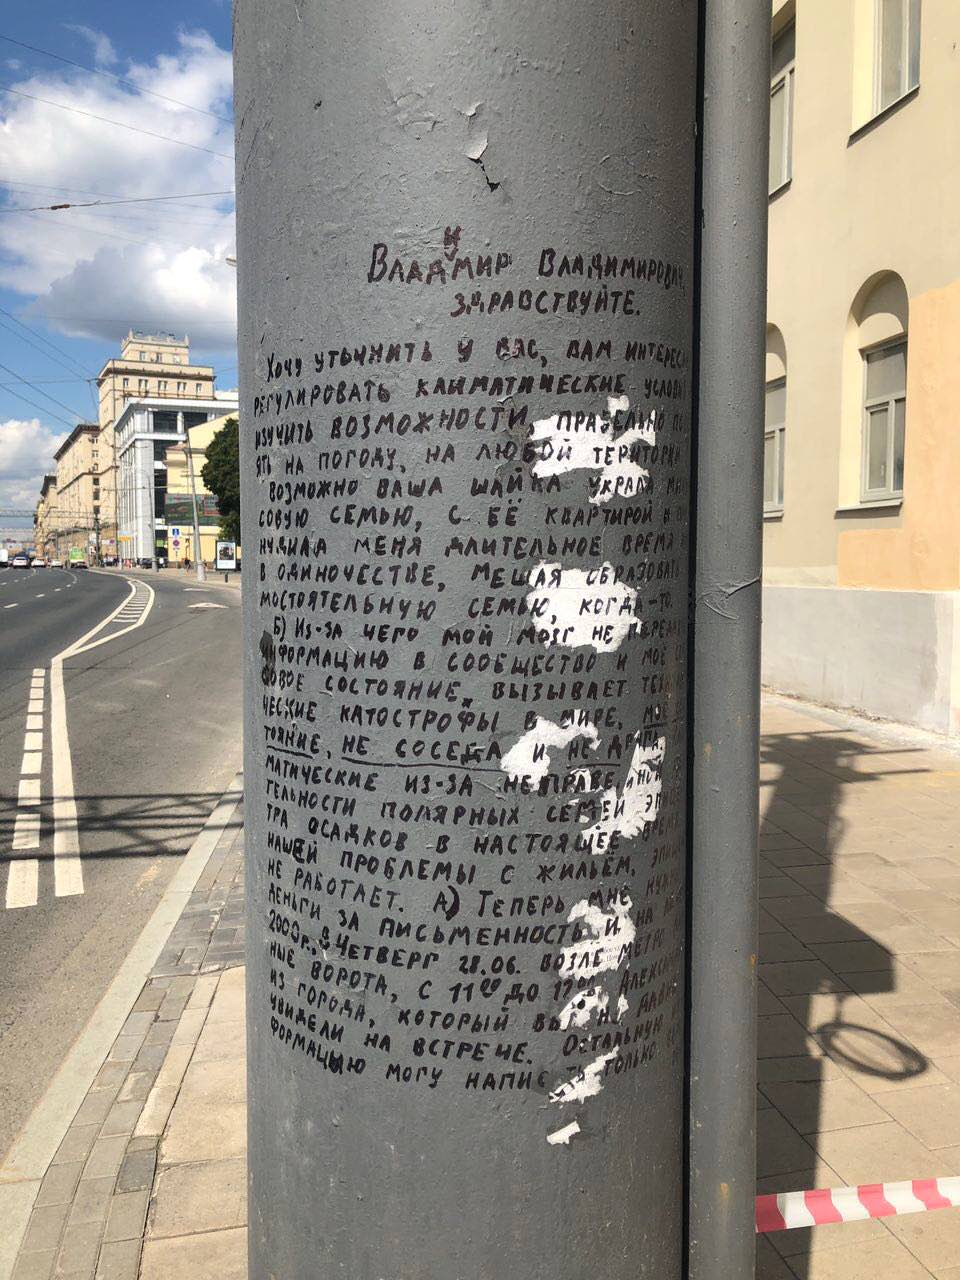 Владимир Владимирович,
здравствуйте.
Хочу утьчнить у вас, вам интерес
регулировать климатические услов
изучить возможности,
ять на погоду, на любой територии
возможно ваша шайка украла
совую семью, с её квартирой и
нудила меня длительное время
в одиночестве, мешая образовать
мостоятельную семью, когда-то.
Б) Из-за чего мой мозг не
информацию в сообщество и моё
вое состояние, вызывает
ческие катострофы в мире, моё
тояние, не соседа и не
матические из-за
тельности полярных семей
тра осадков в настоящее время
нашей проблемы с жильём,
не работает. А) Теперь мне
деньги за письменность и на
2000г., в четверг 28.06. возле метро
ные ворота, с 11 00 до 17 00.
из города, который вы
увидели на встрече. Остальную
формацыю могу написать только